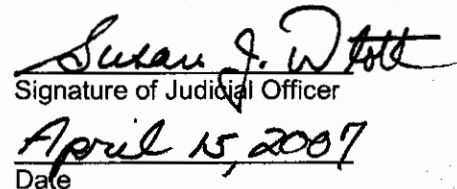 Susan J. Dlott
Signature of Judicial Officer
April 15, 2007
Date